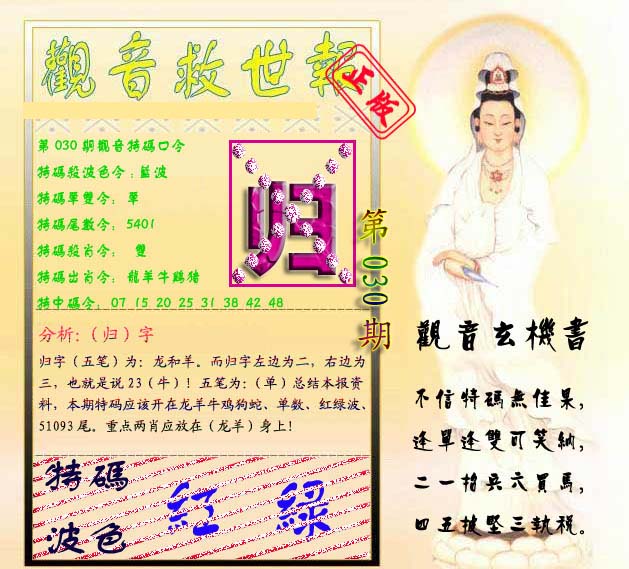 觀音救世報
正版
第030期觀音特碼口令
特碼殺波色令：藍波
特碼單雙令： 單
特碼尾數令： 5401
特碼殺肖令： 雙
特碼出肖令： 龍羊牛鷄猪
特中碼令： 07 15 20 25 31 38 42 48
归
第030期
分析：（归）字
归字（五笔）为：龙和羊。而归字左边为二，右边为
三，也就是说23（牛）！五笔为：（单）总结本报资
料，本期特码应该开在龙羊牛鸡狗蛇、单数、红绿波、
51093尾。重点两肖应放在（龙羊）身上！
特碼
波色
紅 綠
觀音玄機書
不信特碼無佳果，
逢單逢雙可笑納，
二一指兵六買馬，
四五披堅三執税。